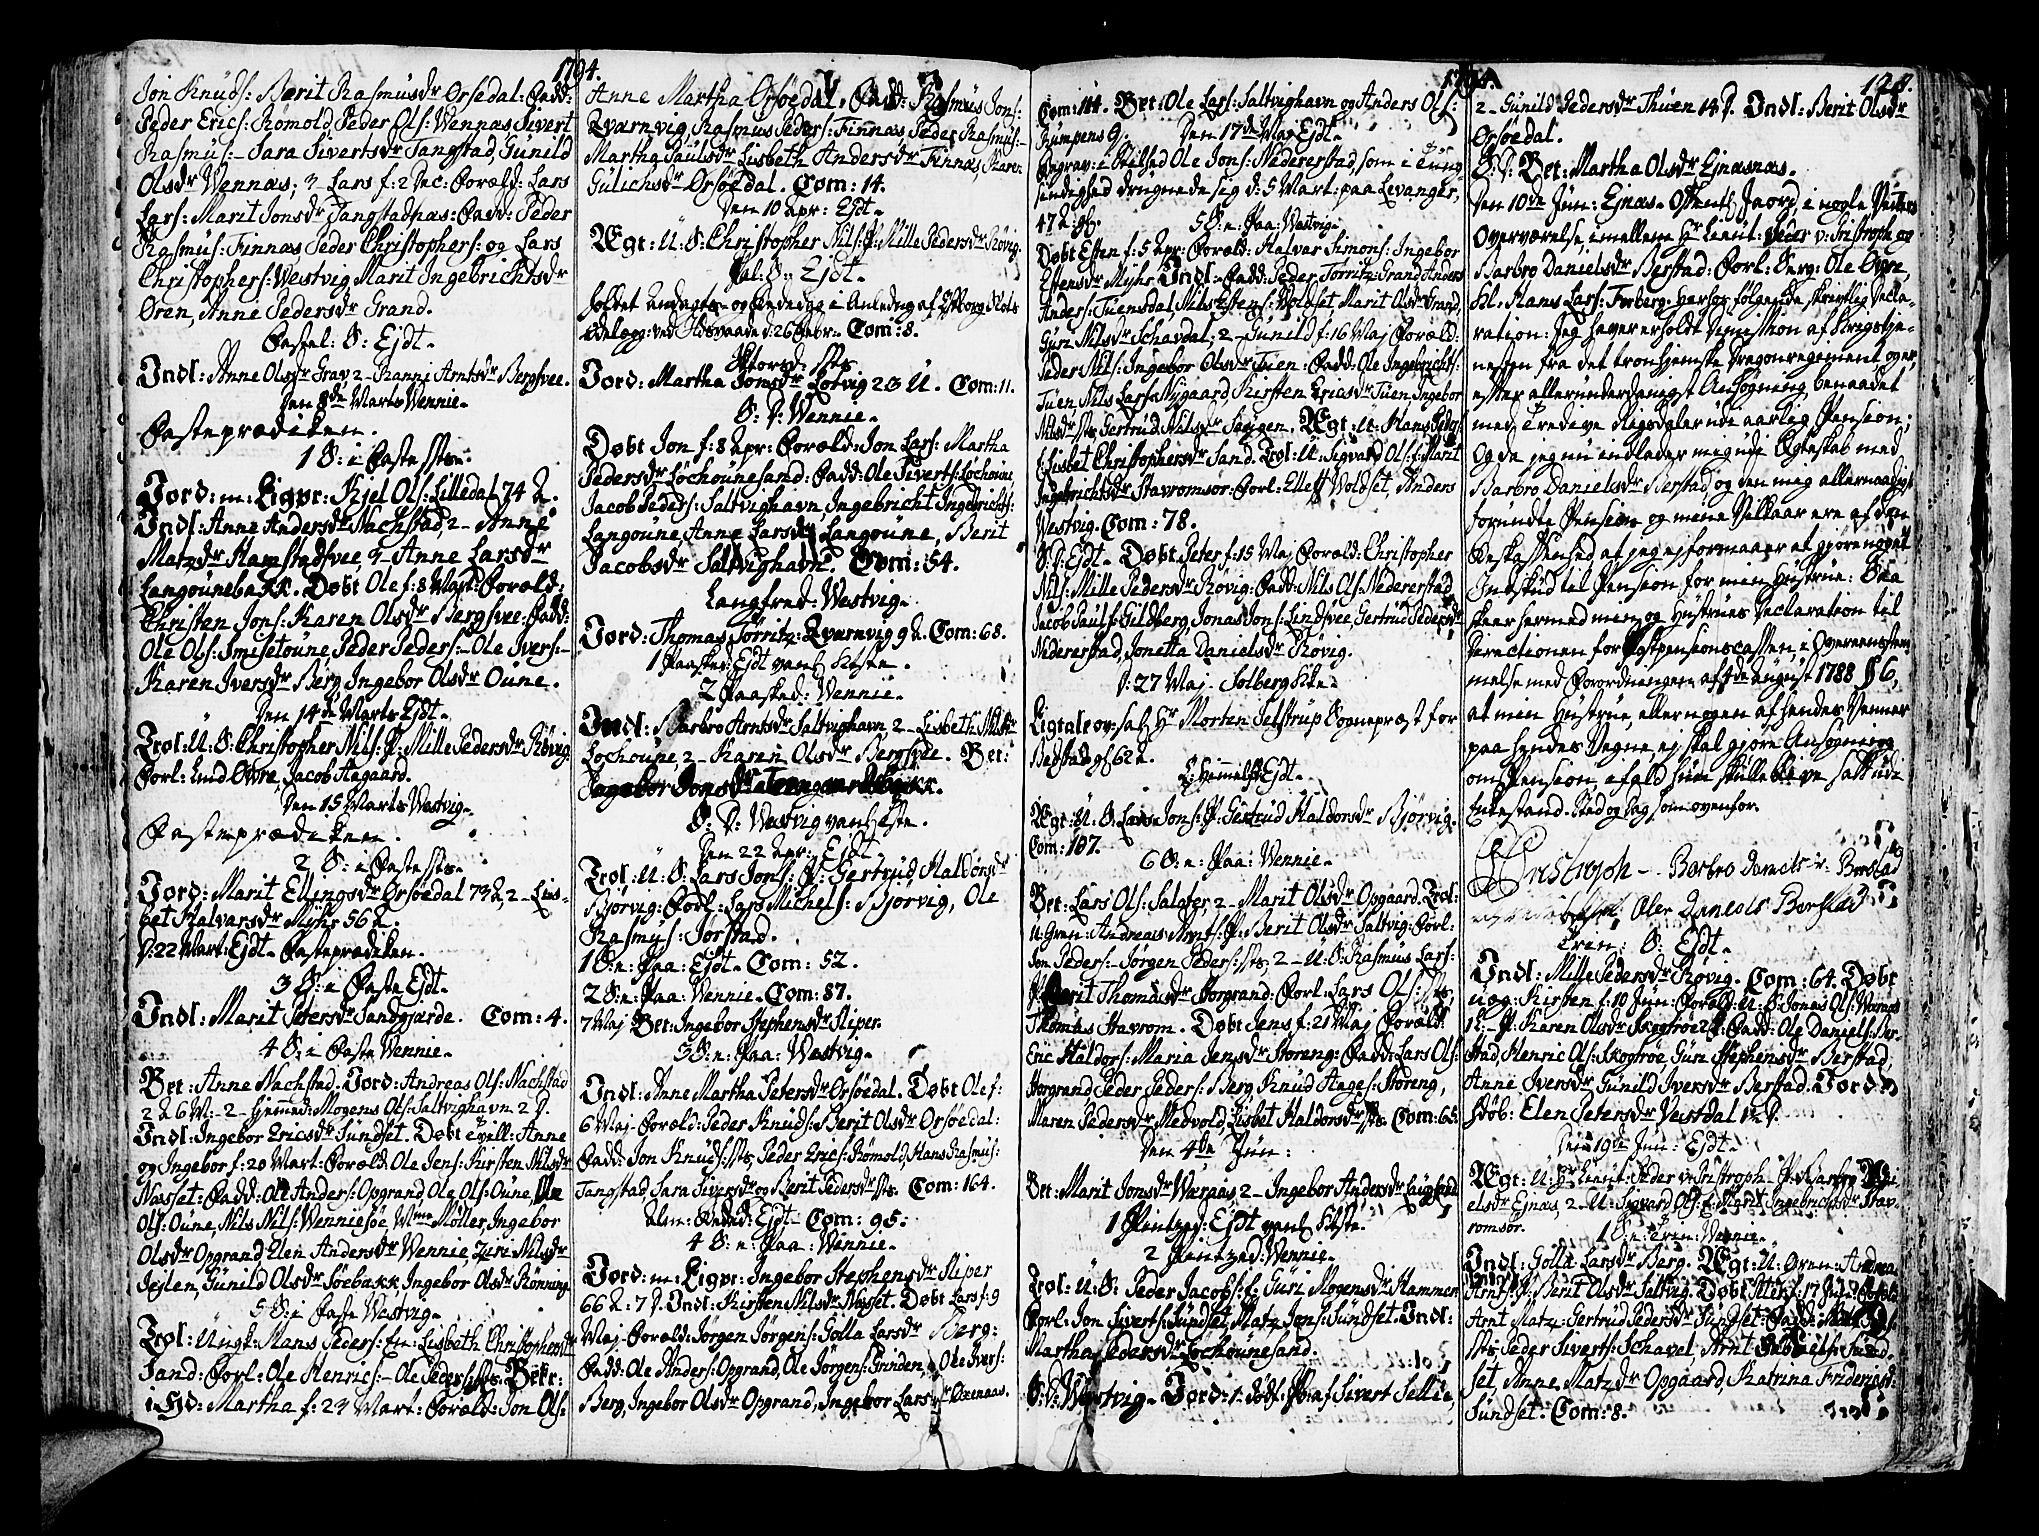 1794.
Jon Knuds: Berit Rasmusdr Ørsedal: Fadd:
Peder Erics: Romold Peder Ols: Wennas Sivert
Rasmus:- Sara Sivertsdr Tangstad, Gunild
Olsdr Wennas; 3 Lars f: 2 Dec: Foræld: Lars
Lars: Marit Jonsdr Tangstadnas: Fadd: Peder
Rasmus: Finnas, Peder Christophers: og Lars
Christophers: Westvig Marit Ingebrichtsdr
Øren, Anne Pedersdr Grand.
Fastel: S: Ejdt-
Indl: Anne Olsdr Grav 2- Ranni Arntsdr Bergsvee.
Den 8de Marts Wennie-
Fasteprædiken.
1 S: i Faste sts-
Jord: m: Ligpr: Kjel Ols: Lilledal 74 A.
Indl: Anne Andersdr Nachstad, 2- Anne
Matzdr Hamstadsvee 3- Anne Larsdr
Langounebakk. Døbt Ole f: 8 Mart: Foræld:
Christen Jons: Karen Olsdr Bergsvee: Fadd:
Ole Ols: Smisetoune, Peder Peders:- Ole Ivers:-
Karen Iversdr Berg Ingebor Olsdr Oune.
Den 14de Marts Ejdt-
Trol: U: S: Christopher Nils: P: Mille Pedersdr Røvig
Forl: Lind Øvre, Jacob Aagaard.
Den 15 Marts Westvig-
Fasteprædiken.
2 S: i Faste sts-
Jord: Marit Ellingsdr Ørsøedal 73 A, 2- Lis-
bet Halvarsdr Myhr 56 A.
D: 22 Mart: Ejdt- Fasteprædiken.
3 S: i Faste Ejdt-
Indl: Marit Petersdr Sandgjarde. Com: 4.
4 S: i Faste Wennie-
Bet: Anne Nachstad: Jord: Andreas Ols: Nachstad
2 A 6 M: 2- Hjemed: Mogens Ols: Saltvighavn 2 D.
Indl: Ingebor Ericsdr Sundset. Døbt tvill: Anne
og Ingebor f: 20 Mart: Foræld: Ole Jens: Kirsten Nilsdr
Nasset: Fadd: Ole Anders: Opgrand Ole Ols: Oune, Ole
Ols: Oune, Nils Nils: Wenniesøe, Wme Møller, Ingebor
Olsdr Opgrand Elen Andersdr Wennie, Zeri Nilsdr
Sejlen, Gunild Olsdr Søebakk, Ingebor Olsdr Rønning
5 S: i Faste Westvig-
Trol: Ungk: Hans Peders: En: Lisbeth Christophersdr
Sand: Forl: Ole Henrics:- Ole Peders: sts: Bekr:
i Hd: Martha f: 23 Mart: Foræld: Jon Ols:
Anne Martha Ørsøedal, Fadd: Rasmus Jons:
Qvarnvig, Rasmus Peders: Finnas, Peder Rasmus:-
Martha Paulsdr Lisbeth Andersdr Finnas, Karen
Gulichsdr Ørsøedal. Com: 14.
Den 10 Apr: Ejdt-
Ægt: U: S: Christopher Nils: P: Mille Pedersdr Røvig
Pal: S: Ejdt-
Com: 8.
Skiersd: sts
Jord: Martha Jonsdr Lotvig 23 U. Com: 11.
S: D: Wennie-
Døbt Jon f: 8 Apr: Foræld: Jon Lars: Martha
Pedersdr Lochounesand: Fadd: Ole Siverts: Lochoune
Jacob Peders: Saltvighavn, Ingebricht Ingebrichts:
Langoune, Anne Larsdr Langoune, Berit
Jacobsdr Saltvighavn. Com: 54.
Langfred: Westvig-
Jord: Thomas Torritz: Qvarnvig 9 A. Com: 68.
1 Paasked: Ejdt
2 Paasked: Wennie-
Indl: Barbro Arntsdr Saltvighavn, 2- Lisbeth
Lochoune 2- Karen Olsdr Bergsvee. Bet:
Ingebor Jonsdr
S: D: Westvig
Den 22 Apr: Ejdt-
Trol: U: S: Lars Jons: P: Gertrud Haldorsdr
Bjørvig: Forl: Lars Michels: Bjørvig, Ole
Rasmus: Jorstad.
1 S: e: Paa: Ejdt- Com: 52.
2 S: e: Paa: Wennie- Com: 87.
7 Maj Bet: Ingebor Stephensdr Sliper.
3 S: e: Paa: Westvig-
Indl: Anne Martha Petersdr Ørsøedal. Døbt Ole f:
6 Maj- Foræld: Peder Knuds: Berit Olsdr Ørsøedal:
Fadd: Jon Knuds: sts, Peder Erics: Romold, Hans Rasmus:
Tangstad, Sara Siversdr og Berit Pedersdr sts. Com: 164.
Alm: Bededl: Ejdt- Com: 95:
4 S: e: Paa: Wennie-
Jord: m: Ligpr: Ingebor Stephensdr Sliper
66 A: 7 D. Indl: Kirsten Nilsdr Nasset. Døbt Lars f: 9
Maj- Foræld: Jørgen Jørgens: Golla Larsdr Berg:
Fadd: Ole Anders: Opgrand, Ole Jørgens: Grinden, Ole Ivers:
Berg, Ingebor Olsdr Opgrand, Ingebor Larsdr Oxenaas.
1794.
Com: 114. Bet: Ole Lars: Saltvighavn og Anders Ols:
Rumpens G. Den 17de Maj Ejdt-
Begrav: i Stilhed Ole Jons: Nedererstad, som i Tung-
sindighed drugnede sig d: 5 Mart: paa Levanger,
47 A: gl.
5 S: e: Paa: Westvig-
Døbt Esten f: 5 Apr: Foræld: Halvar Simons: Ingebor
Estensdr Myhr. Indl- Fadd: Peder Torritz: Grand Anders
Anders: Tuensdal, Nils Estens: Woldset, Marit Olsdr Grand,
Guri Nilsdr Schavdal; 2- Gunild f: 16 Maj Foræld:
Peder Nils: Ingebor Olsdr Tuen: Fadd: Ole Ingebrichts:
Tuen, Nils Lars: Nygaard, Kirsten Ericsdr Tuen, Ingebor
Nilsdr sts, Gertrud Nilsdr Saugen. Ægt: U: Hans Peders:
Lisbet Christophersdr Sand. Trol: U: Sigvard Ols: Marit
Ingebrichtsdr Stavromsør: Forl: Elleff Woldset, Anders
Westvig. Com: 78.
S: D: Ejdt- Døbt Peter f: 15 Maj Foræld: Christopher
Nils: Mille Pedersdr Røvig: Fadd: Nils Ols: Nedererstad
Jacob Pauls: Gildberg, Jonas Jons: Lindsvee, Gertrud Pedersdr
Nedererstad, Jonetta Danielsdr Røvig.
D: 27 Maj- Solberg Kke-
Ligtale ov: Sal: Hr Morten Selstrup Sognepræst for
Bejstad gl 62 A.
C: Himmelf: Ejdt-
Ægt: U: S: Lars Jons: P: Gertrud Haldorsdr Bjørvig.
Com: 107.
6 S: e: Paa: Wennie-
Bet- Lars Ols: Salater, 2- Marit Olsdr Opgaard. Trol:
U: Gren: Andreas Arnts: P: Berit Olsdr Saltvig: Forl:
Jon Peders:- Jørgen Peders: sts, 2- U: S: Rasmus Lars:
P: Berit Thomasdr Storgrand: Forl: Lars Ols: sts,
Thomas Stavrom. Døbt Jens f: 21 Maj Foræld:
Eric Haldors: Maria Jensdr Storeng: Fadd: Lars Ols:
Storgrand, Peder Peders: Berg, Knud Aages: Storeng,
Maren Pedersdr Medvold, Lisbet Haldorsdr sts. Com: 65.
Den 4de Jun:
Bet: Marit Jonsdr Wargaas 2- Ingebor Andersdr
1 Pintzed: Ejdt
2 Pintzed: Wennie-
Trol: U: S: Peder Jacobs: P: Guri Mogensdr Hammer
Forl: Jon Siverts: Sundset, Matz Jons: Sundset. Indl:
Martha Pedersdr Lochounesand.
S: D: Westvig- Jord: 1- dødf: Pb: af Sivert Sellie,
128.
2- Gunild Pedersdr Thuen 14 D. Indl: Berit Olsdr
Ørsøedal.
S: D: Bet: Martha Olsdr Ejnasnæs.
Den 10de Jun: Ejnæs- Offentl: Jaord, i nogle Veiters
Overværelse, imellem Hr Lieut: Peter v: Tristroph og
Barbro Danielsdr Berstad: Forl: Serg: Ole Øvre,
Kl: Hans Lars: Forberg: herhos følgende skriftlig Decla-
ration: Jeg haver erholdt Demission af Krigstje-
nesten fra det tronhjemske Dragonregement, og er,
efter allerunderdanigst Ansøgning benaadet
med tredive Rigsdaler udi aarlig Pension;
Og da jeg nu indlader mig udi Egteskab med
Barbro Danielsdr Berstad, og den mig allernaadigst
forundte Pension og mine Vilkaar ere af den
Beskaffenhed, at jeg ej formaaer at gjøre noget
Indskud til Pension for min Hustrue: Saa
skeer hermed min og Hustrues Declaration til
Directionen for Postpensionscassen, i Overeenstem-
melse med Forordningen af 4de August 1788 § 6,
at min Hustrue, eller nogen af hendes Venner
paa hendes Vegne, ej skal gjøre Ansøgning
om Pension, ifald hun skulle blive sat i udi
Enkestand. Sted og Dag, som ovenfor.
Tristroph - Barbro Daniels dr: Berstad
Olle Daniels Berstad
Tren: S: Ejdt-
Indl: Mille Pedersdr Røvig. Com: 64. Døbt
uæg: Kirsten f: 10 Jun: Foræld: U: S: Jonas Ols: Warnæs
1 L:- P: Karen Olsdr Skogtrøe 2 L: Fadd: Ole Daniels: Ber-
stad, Henric Ols: Skogtrøe, Guri Stephensdr Berstad,
Anne Iversdr Gunild Iversdr Berstad. Jord:
Hdøb: Elen Petersdr Veistdal 12 D.
Den 19de Jun: Ejdt-
Ægt: U: Hr Lieut: Peder v: Tristroph- P: Barbro Dani-
elsdr Ejnæs, 2- U: Sigvard Ols: P: Marit Ingebrichtsdr Stav-
romsør.
1 S: e: Tren: Wennie-
Indl: Golla Larsdr Berg. Ægt: U: Gren: Andreas
Arnts: P: Berit Olsdr Saltvig. Døbt Peter f: 17 Jun: Foræld:
Arnt Matz: Gertrud Pedersdr Sundset: Fadd:
sts, Peder Siverts: Schavel, Arnt Gabriels: Sund-
set, Anne Matzdr Opgaard, Katrina Fridericsdr
Sundset- Com: 8.